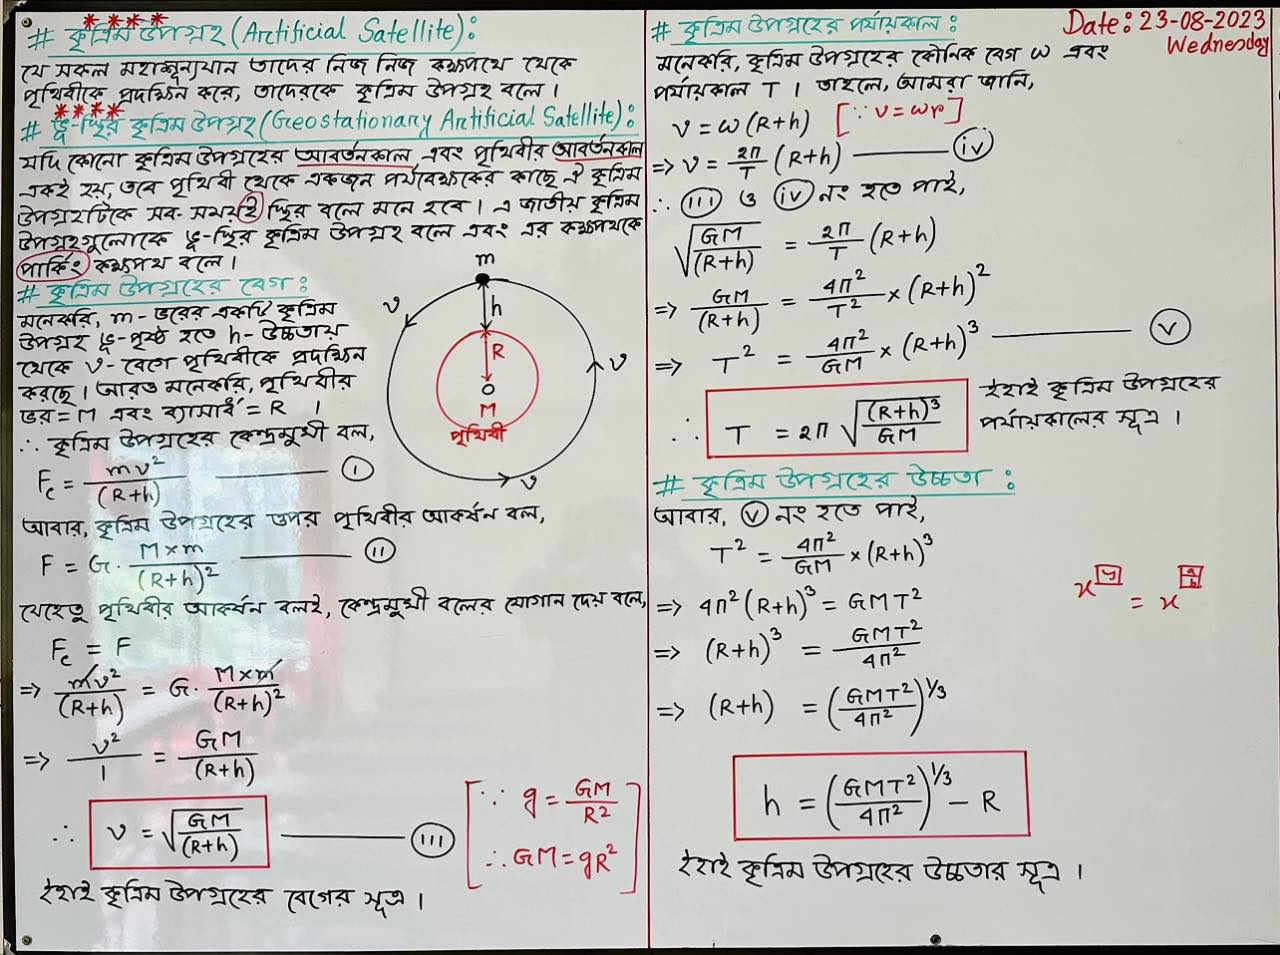 # কৃত্রিম উপগ্রহ (Artificial Satellite):
যে সকল মহাশূন্যযান তাদের নিজ নিজ কক্ষপথে থেকে
পৃথিবীকে প্রদক্ষিন করে, তাদেরকে কৃত্রিম উপগ্রহ বলে।
# ভূ-স্থির কৃত্রিম উপগ্রহ (Geostationary Artificial Satellite):
যদি কোনো কৃত্রিম উপগ্রহের আবর্তনকাল এবং পৃথিবীর আবর্তনকাল
একই হয়, তবে পৃথিবী থেকে একজন পর্যবেক্ষকের কাছে ঐ কৃত্রিম
উপগ্রহটিকে সব-সময়ই স্থির বলে মনে হবে। এ জাতীয় কৃত্রিম
উপগ্রহগুলোকে ভূ-স্থির কৃত্রিম উপগ্রহ বলে এবং এর কক্ষপথকে
পার্কিং কক্ষপথ বলে।
# কৃত্রিম উপগ্রহের বেগ:
মনেকরি, m-ভরের একটি কৃত্রিম
উপগ্রহ ভূ-পৃষ্ঠ হতে h-উচ্চতায়
থেকে v-বেগে পৃথিবীকে প্রদক্ষিন
করছে। আরও মনেকরি, পৃথিবীর
ভর = M এবং ব্যাসার্ধ = R ।
m
v
h
R
v
O
M
পৃথিবী
v
∴ কৃত্রিম উপগ্রহের কেন্দ্রমুখী বল,
F_c = mv²/(R+h) ——— (I)
আবার, কৃত্রিম উপগ্রহের ওপর পৃথিবীর আকর্ষন বল,
F = G. M×m/(R+h)² ——— (II)
যেহেতু পৃথিবীর আকর্ষন বলই, কেন্দ্রমুখী বলের যোগান দেয় বলে,
F_c = F
=> mv²/(R+h) = G. M×m/(R+h)²
=> v²/1 = GM/(R+h)
∴ v = √(GM/(R+h)) ——— (III)
[∵ g = GM/R²
∴ GM = gR²]
ইহাই কৃত্রিম উপগ্রহের বেগের সূত্র।
Date: 23-08-2023
Wednesday
# কৃত্রিম উপগ্রহের পর্যায়কাল:
মনেকরি, কৃত্রিম উপগ্রহের কৌনিক বেগ ω এবং
পর্যায়কাল T । তাহলে, আমরা জানি,
v = ω(R+h) [∵ v = ωr]
=> v = 2π/T (R+h) ——— (IV)
∴ (III) ও (IV) নং হতে পাই,
√(GM/(R+h)) = 2π/T (R+h)
=> GM/(R+h) = 4π²/T² × (R+h)²
=> T² = 4π²/GM × (R+h)³ ——— (V)
∴ T = 2π √((R+h)³/GM)
ইহাই কৃত্রিম উপগ্রহের
পর্যায়কালের সূত্র।
# কৃত্রিম উপগ্রহের উচ্চতা:
আবার, (V) নং হতে পাই,
T² = 4π²/GM × (R+h)³
=> 4π²(R+h)³ = GMT²
=> (R+h)³ = GMT²/4π²
=> (R+h) = (GMT²/4π²)^1/3
h = (GMT²/4π²)^1/3 - R
ইহাই কৃত্রিম উপগ্রহের উচ্চতার সূত্র।